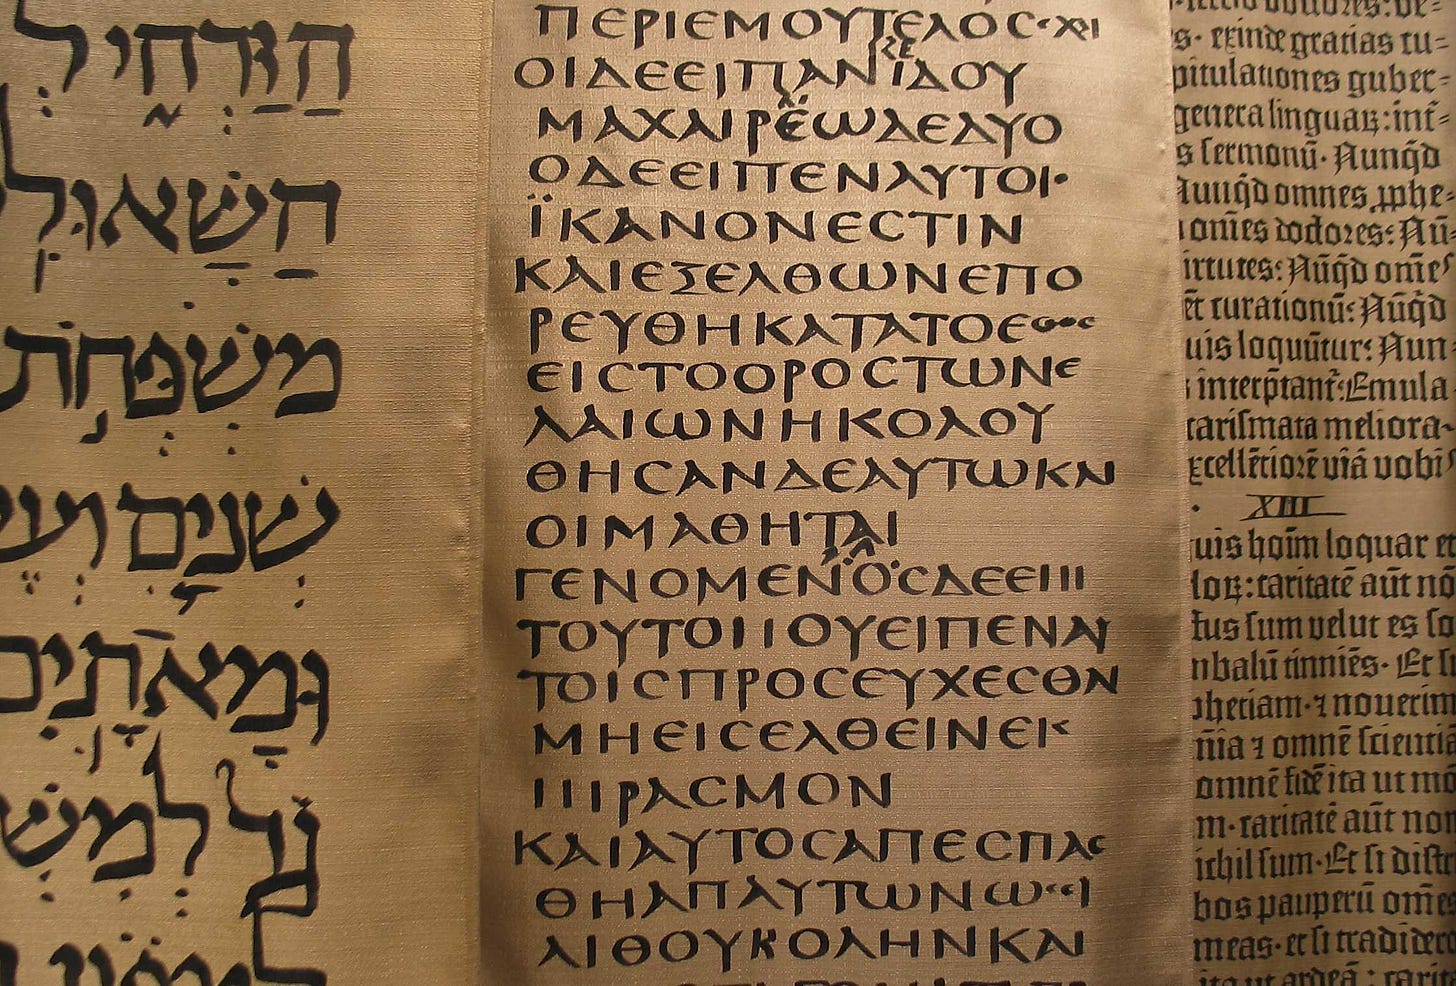 הַזַּרְחִי לְ
הַשָּׁאוּלִ
מִשְׁפְּחֹת
שְׁנַיִם
וּמָאתָיִם
גָד לְמִשְׁ
ΠΕΡΙΕΜΟΥΤΕΛΟC
ΟΙΔΕΕΙΠΑΝΙΔΟΥ
ΜΑΧΑΙΡΕΩΔΕΔΥΟ
ΟΔΕΕΙΠΕΝΑΥΤΟΙ·
ΪΚΑΝΟΝΕCΤΙΝ
ΚΑΙΕΞΕΛΘΩΝΕΠΟ
ΡΕΥΘΗΚΑΤΑΤΟΕΘΟC
ΕΙCΤΟΟΡΟCΤΩΝΕ
ΛΑΙΩΝΗΚΟΛΟΥ
ΘΗCΑΝΔΕΑΥΤΩΚΑΙ
ΟΙΜΑΘΗΤΑΙ
ΓΕΝΟΜΕΝΟCΔΕΕΠΙ
ΤΟΥΤΟΠΟΥΕΙΠΕΝΑΥ
ΤΟΙCΠΡΟCΕΥΧΕCΘΑΙ
ΜΗΕΙCΕΛΘΕΙΝΕΙC
ΠΙΡΑCΜΟΝ
ΚΑΙΑΥΤΟCΑΠΕCΠΑC
ΘΗΑΠΑΥΤΩΝΩCΕΙ
ΛΙΘΟΥΚΟΛΗΝΚΑΙ
s· exinde gratias cu⸗
pitulationes guber⸗
genera linguaꝝ: int̄⸗
s sermonū· Nunqͥd
Nunqͥd omnes ꝓphe⸗
omēs doctores: Nū⸗
irtutes: Nūqͥd omēs
curationū: Nūqͥd
uis loquūtur: Nun⸗
interp̄tant᷑: Emula
carismata meliora·
xcellētiorē viā vobis
XIII
uis hoīm loquar et
loꝝ: caritatē aūt nō
tus sum velut es so
nbalū tinniēs· Et si
phetiam· ⁊ noverim
nīa ⁊ omnē scientia
omnē fidē ita ut mō
m· caritatē aūt non
ichil sum· Et si distr
bos pauperū omēs
meas· et si tradidero